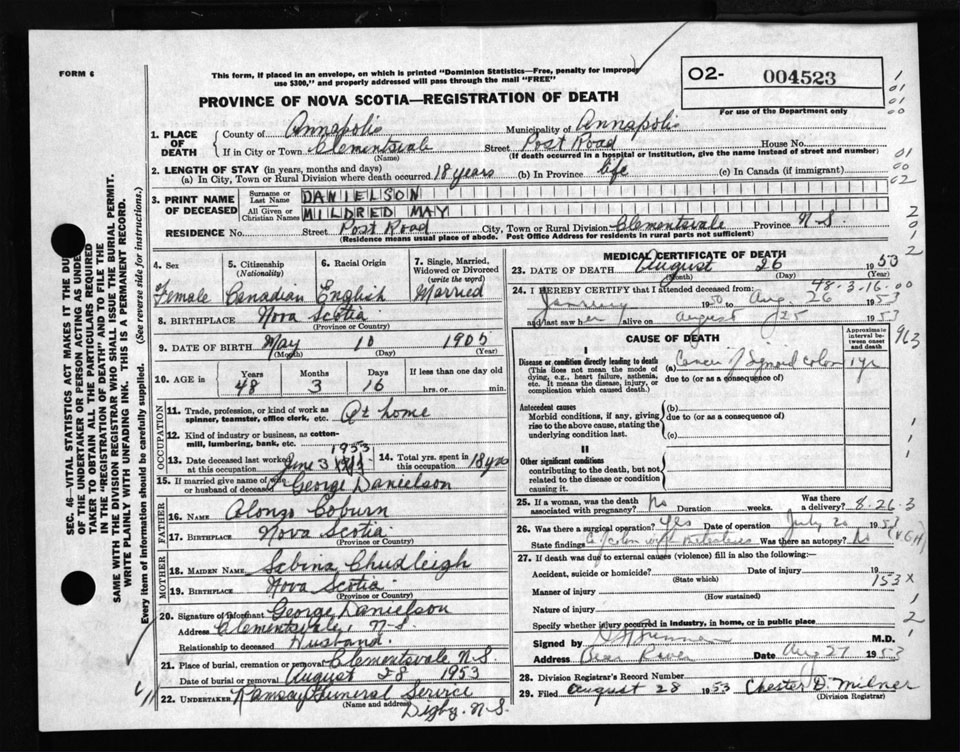 FORM 6
This form, if placed in an envelope, on which is printed "Dominion Statistics—Free, penalty for improper
use $300," and properly addressed will pass through the mail "FREE"
O2- 004523
For use of the Department only
PROVINCE OF NOVA SCOTIA—REGISTRATION OF DEATH
1. PLACE OF DEATH
County of Annapolis Municipality of Annapolis
If in City or Town Clementsvale Street Post Road House No.
(Name) (If death occurred in a hospital or institution, give the name instead of street and number)
2. LENGTH OF STAY (in years, months and days)
(a) In City, Town or Rural Division where death occurred 18 years (b) In Province life (c) In Canada (if immigrant)
3. PRINT NAME OF DECEASED
Surname or Last Name DANIELSON
All Given or Christian Names MILDRED MAY
RESIDENCE No. Street Post Road City, Town or Rural Division Clementsvale Province N.S.
(Residence means usual place of abode. Post Office Address for residents in rural parts not sufficient)
4. Sex Female
5. Citizenship (Nationality) Canadian
6. Racial Origin English
7. Single, Married, Widowed or Divorced (write the word) Married
8. BIRTHPLACE Nova Scotia
(Province or Country)
9. DATE OF BIRTH May 10 1905
(Month) (Day) (Year)
10. AGE in Years 48 Months 3 Days 16 If less than one day old hrs. or min.
OCCUPATION
11. Trade, profession, or kind of work as spinner, teamster, office clerk, etc. At home
12. Kind of industry or business, as cotton-mill, lumbering, bank, etc.
13. Date deceased last worked at this occupation June 3 1953
14. Total yrs. spent in this occupation 18 yrs
15. If married give name of wife or husband of deceased George Danielson
FATHER
16. NAME Alonzo Coburn
17. BIRTHPLACE Nova Scotia
(Province or Country)
MOTHER
18. MAIDEN NAME Sabina Chudleigh
19. BIRTHPLACE Nova Scotia
(Province or Country)
20. Signature of Informant George Danielson
Address Clementsvale, N-S.
Relationship to deceased Husband.
21. Place of burial, cremation or removal Clementsvale N.S.
Date of burial or removal August 28 1953
22. UNDERTAKER Ramsay Funeral Service
(Name and address) Digby. N-S.
MEDICAL CERTIFICATE OF DEATH
23. DATE OF DEATH August 26 1953
(Month) (Day) (Year)
48-3-16
24. I HEREBY CERTIFY that I attended deceased from:
January 1950 to Aug. 26 1953
and last saw her alive on August 25 1953
CAUSE OF DEATH
Approximate interval between onset and death
I
Disease or condition directly leading to death
(This does not mean the mode of dying, e.g., heart failure, asthenia, etc. It means the disease, injury, or complication which caused death.)
(a) Cancer of Sigmoid colon 1 yr
due to (or as a consequence of)
963
Antecedent causes
Morbid conditions, if any, giving rise to the above cause, stating the underlying condition last.
(b)
due to (or as a consequence of)
(c)
II
Other significant conditions
contributing to the death, but not related to the disease or condition causing it.
25. If a woman, was the death associated with pregnancy? No Duration weeks. Was there a delivery? 8-26-3
26. Was there a surgical operation? Yes Date of operation July 20
State findings Ca colon with metastases Was there an autopsy? No (V.G.H)
27. If death was due to external causes (violence) fill in also the following:—
Accident, suicide or homicide? Date of injury 19
(State which)
153 x
Manner of injury
(How sustained)
Nature of injury
Specify whether injury occurred in industry, in home, or in public place
Signed by M.D.
Address Bear River Date Aug 27 1953
28. Division Registrar's Record Number
29. Filed August 28 1953 Chester D. Milner
(Division Registrar)
SEC. 46—VITAL STATISTICS ACT MAKES IT THE DUTY
OF THE UNDERTAKER OR PERSON ACTING AS UNDER-
TAKER TO OBTAIN ALL THE PARTICULARS REQUIRED
IN THE "REGISTRATION OF DEATH" AND TO FILE THE
SAME WITH THE DIVISION REGISTRAR WHO SHALL ISSUE THE BURIAL PERMIT.
WRITE PLAINLY WITH UNFADING INK. THIS IS A PERMANENT RECORD.
Every item of information should be carefully supplied. (See reverse side for instructions.)